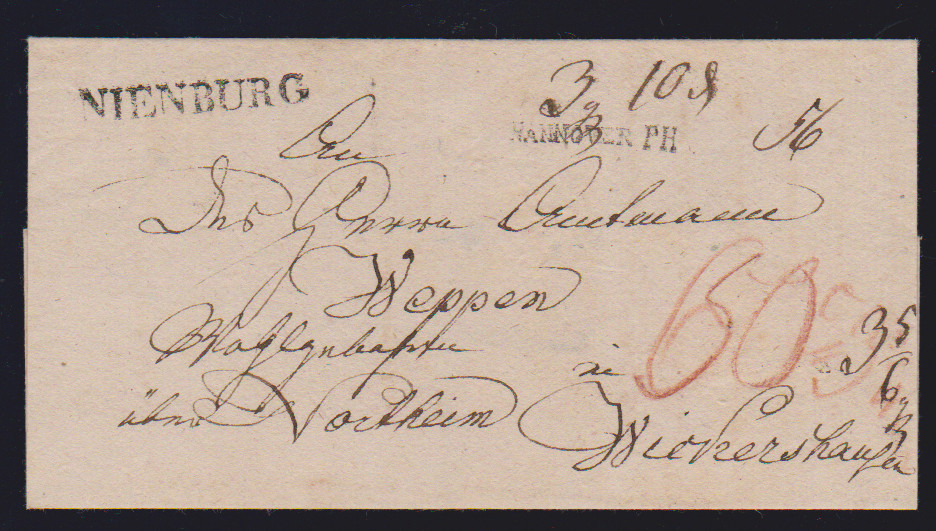 NIENBURG
3 10
HANNOVER PH
56
An
Des Herrn Amtmann
Weppen
Wohlgebohren
in
über Northeim
Wickershausen
60
35
6